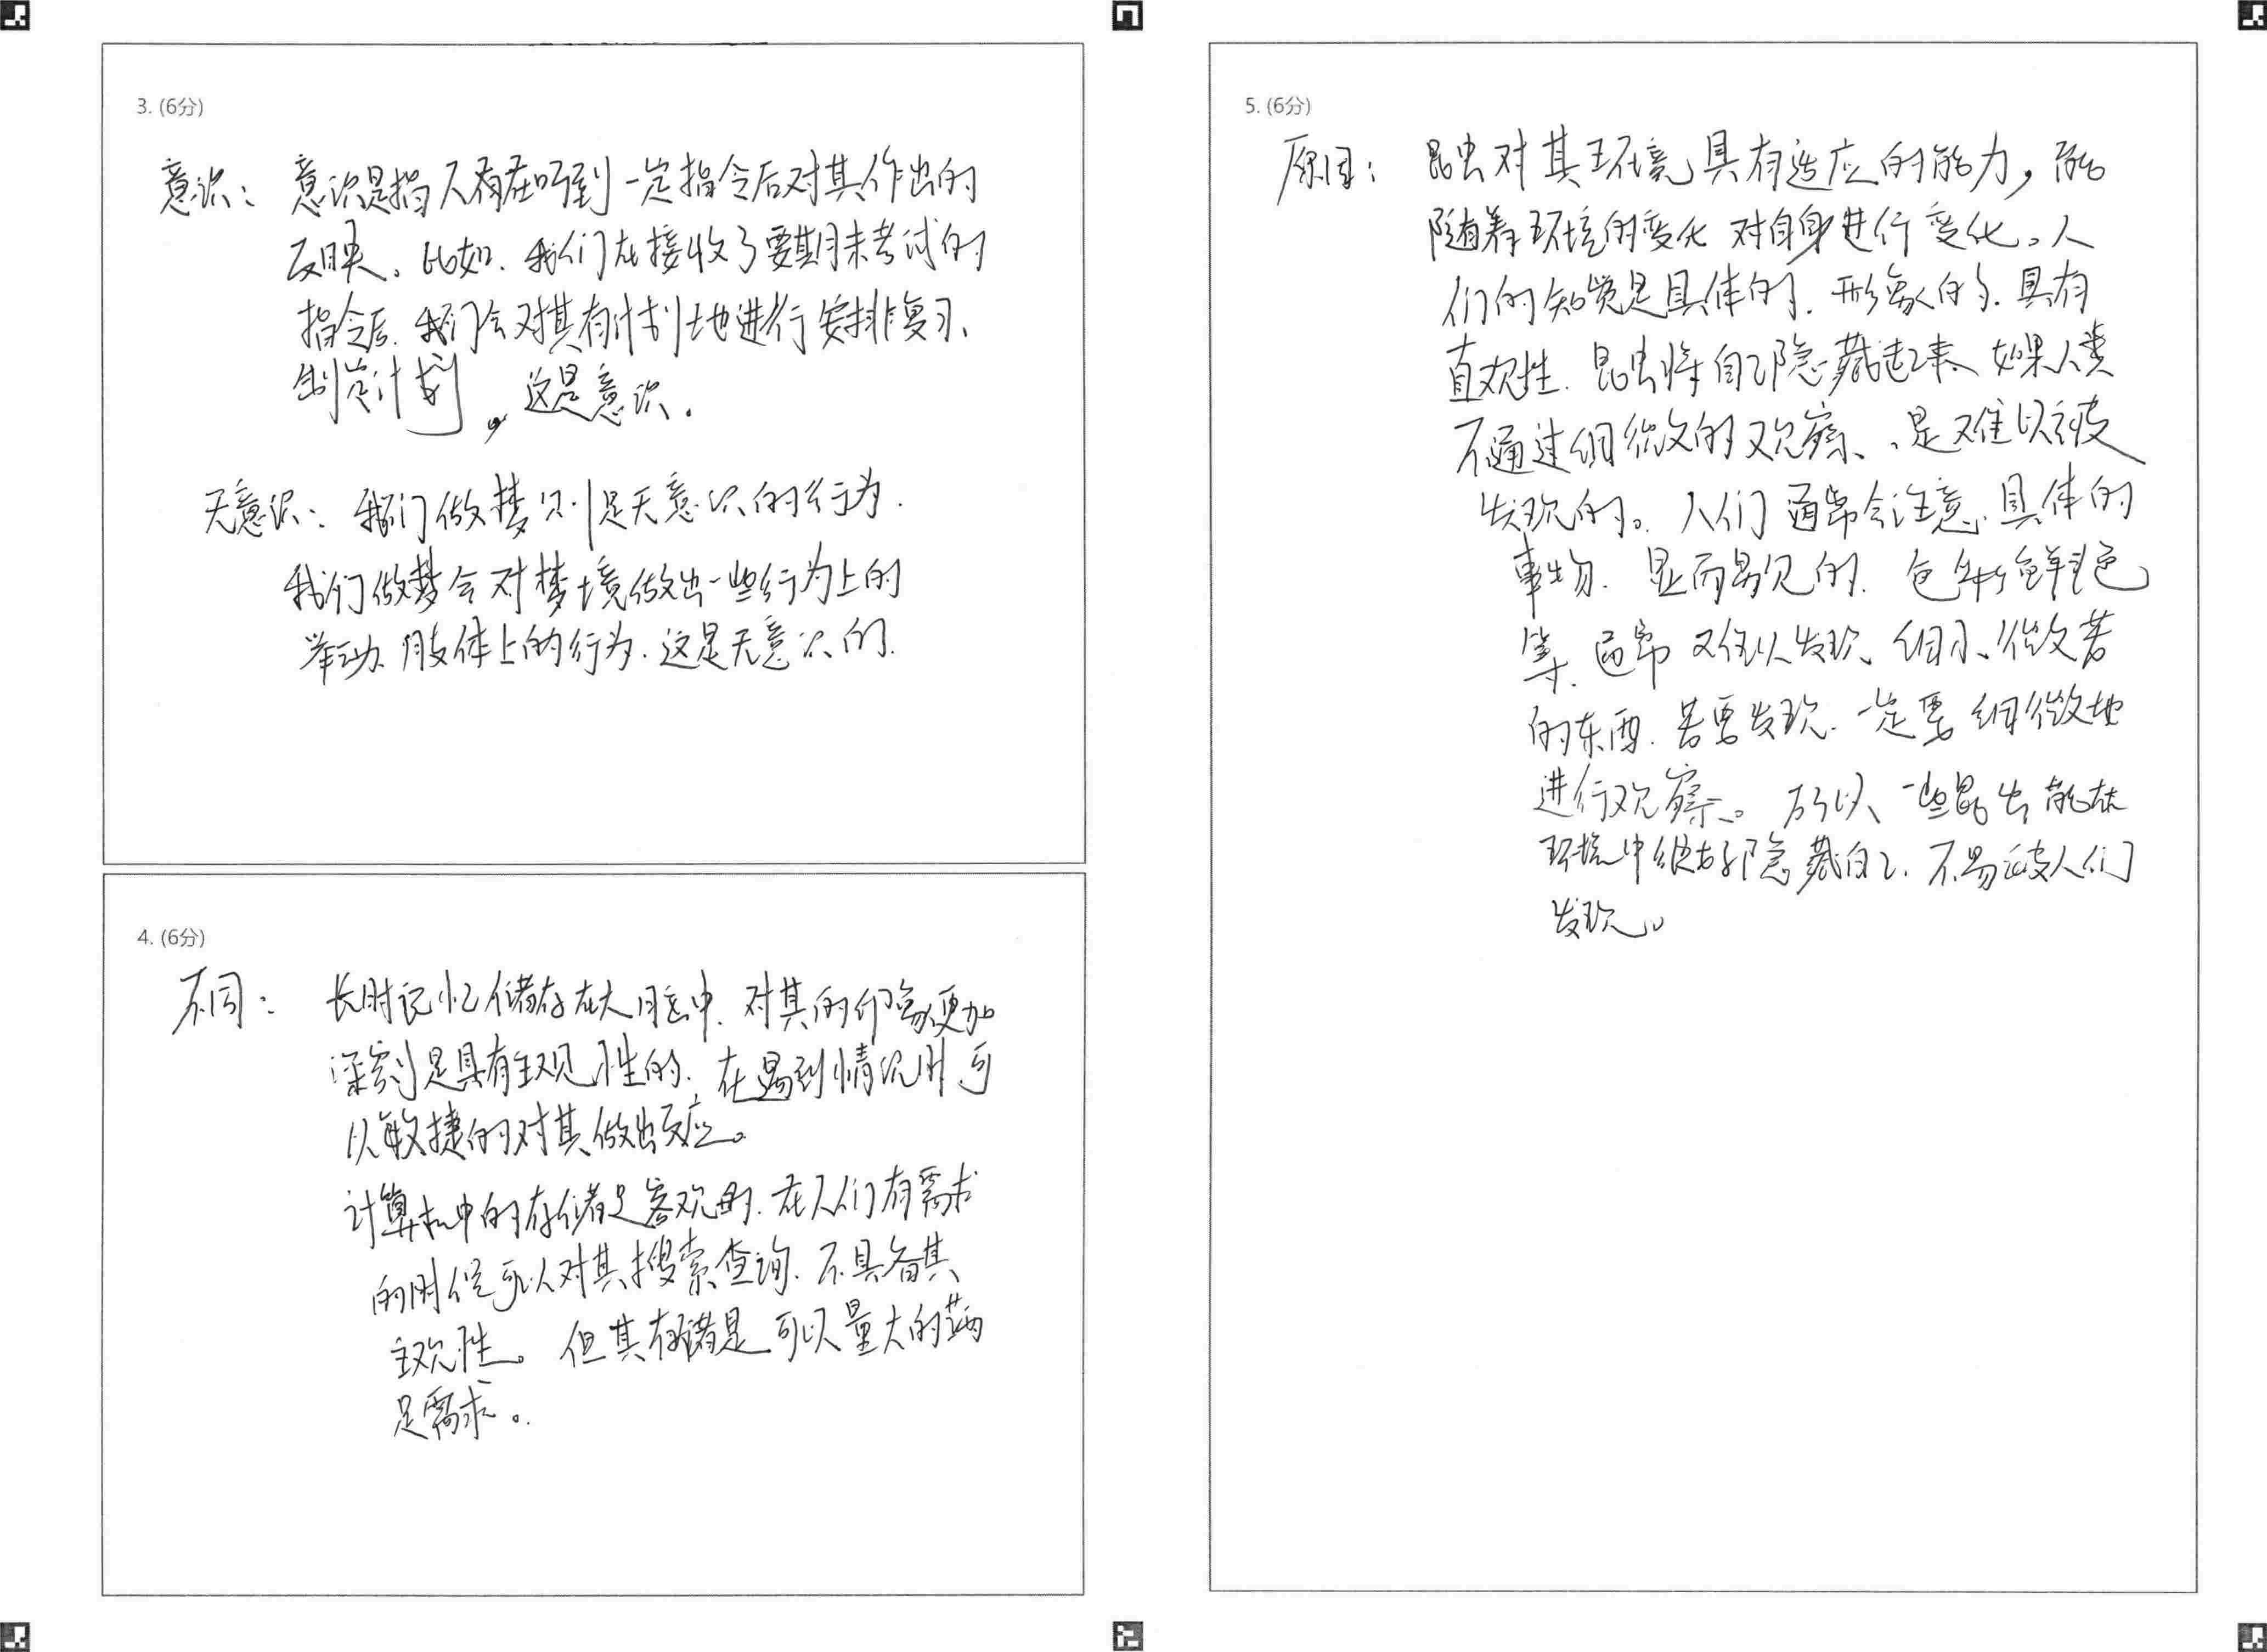 3. (6分)
意识：意识是指人有在听到一定指令后对其作出的
反映。比如、我们在接收了要期末考试的
指令后、我们会对其有计划地进行安排复习、
制定计划，这是意识。
无意识：我们做梦则是无意识的行为.
我们做梦会对梦境做出一些行为上的
举动、肢体上的行为.这是无意识的.
4. (6分)
不同：长时记忆储存在大脑中.对其的印象更加
深刻是具有主观性的.在遇到情况时可
以敏捷的对其做出反应。
计算机中的存储是客观的.在人们有需求
的时候可以对其搜索查询.不具备其
主观性。但其存储是可以量大的满
足需求。
5. (6分)
原因：昆虫对其环境具有适应的能力，能
随着环境的变化对自身进行变化。人
们的知觉是具体的.形象的.具有
直观性.昆虫将自己隐藏起来、如果人类
不通过细微的观察、是难以被
发现的。人们通常会注意具体的
事物.显而易见的.色彩鲜艳
等.通常难以发现、细小、微若
的东西.若要发现.一定要细微地
进行观察。所以、一些昆虫能在
环境中很好隐藏自己.不易被人们
发现。